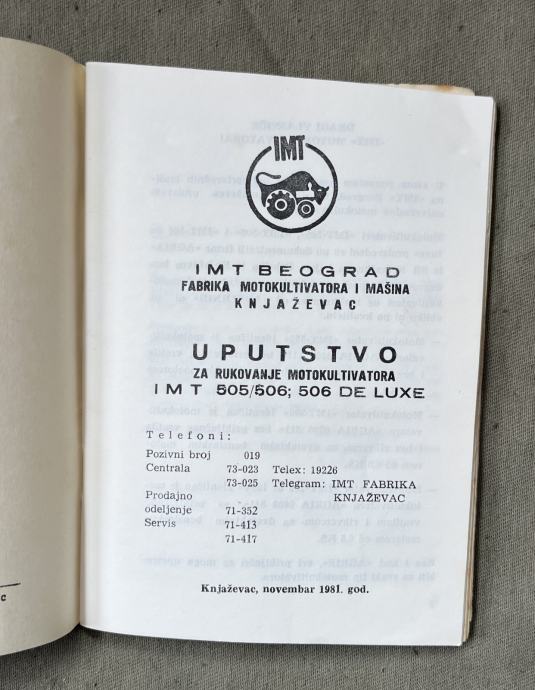 IMT
IMT BEOGRAD
FABRIKA MOTOKULTIVATORA I MAŠINA
KNJAŽEVAC
UPUTSTVO
ZA RUKOVANJE MOTOKULTIVATORA
IMT 505/506; 506 DE LUXE
Telefoni:
Pozivni broj 019
Centrala 73-023 Telex: 19226
73-025 Telegram: IMT FABRIKA
KNJAŽEVAC
Prodajno
odeljenje 71-352
Servis 71-413
71-417
Knjaževac, novembar 1981. god.
c